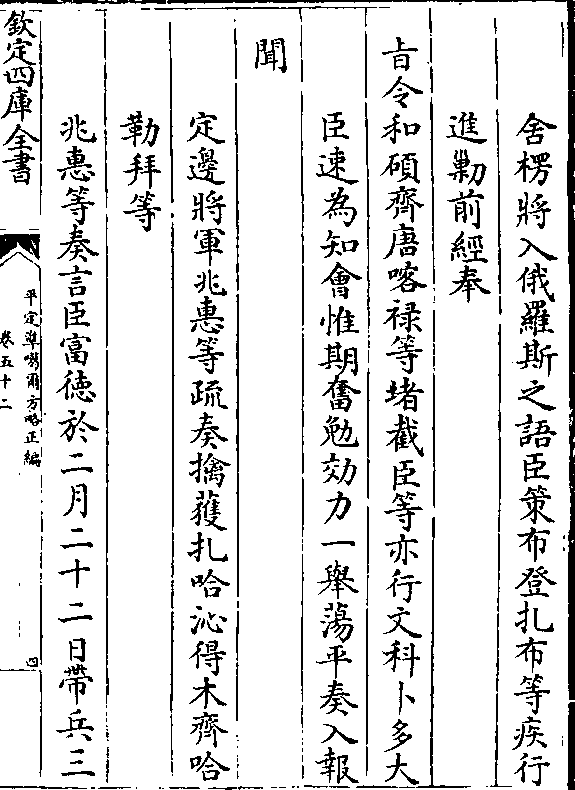 舍楞將入俄羅斯之語臣策布登扎布等疾行
進勦前經奉
旨令和碩齊唐喀祿等堵截臣等亦行文科卜多大
臣速為知會惟期奮勉効力一舉蕩平奏入報
聞
定邊將軍兆惠等疏奏擒獲扎哈沁得木齊哈
勒拜等
兆惠等奏言臣富德於二月二十二日帶兵三
欽定四庫全書
平定準噶爾方略正編
卷五十二
四